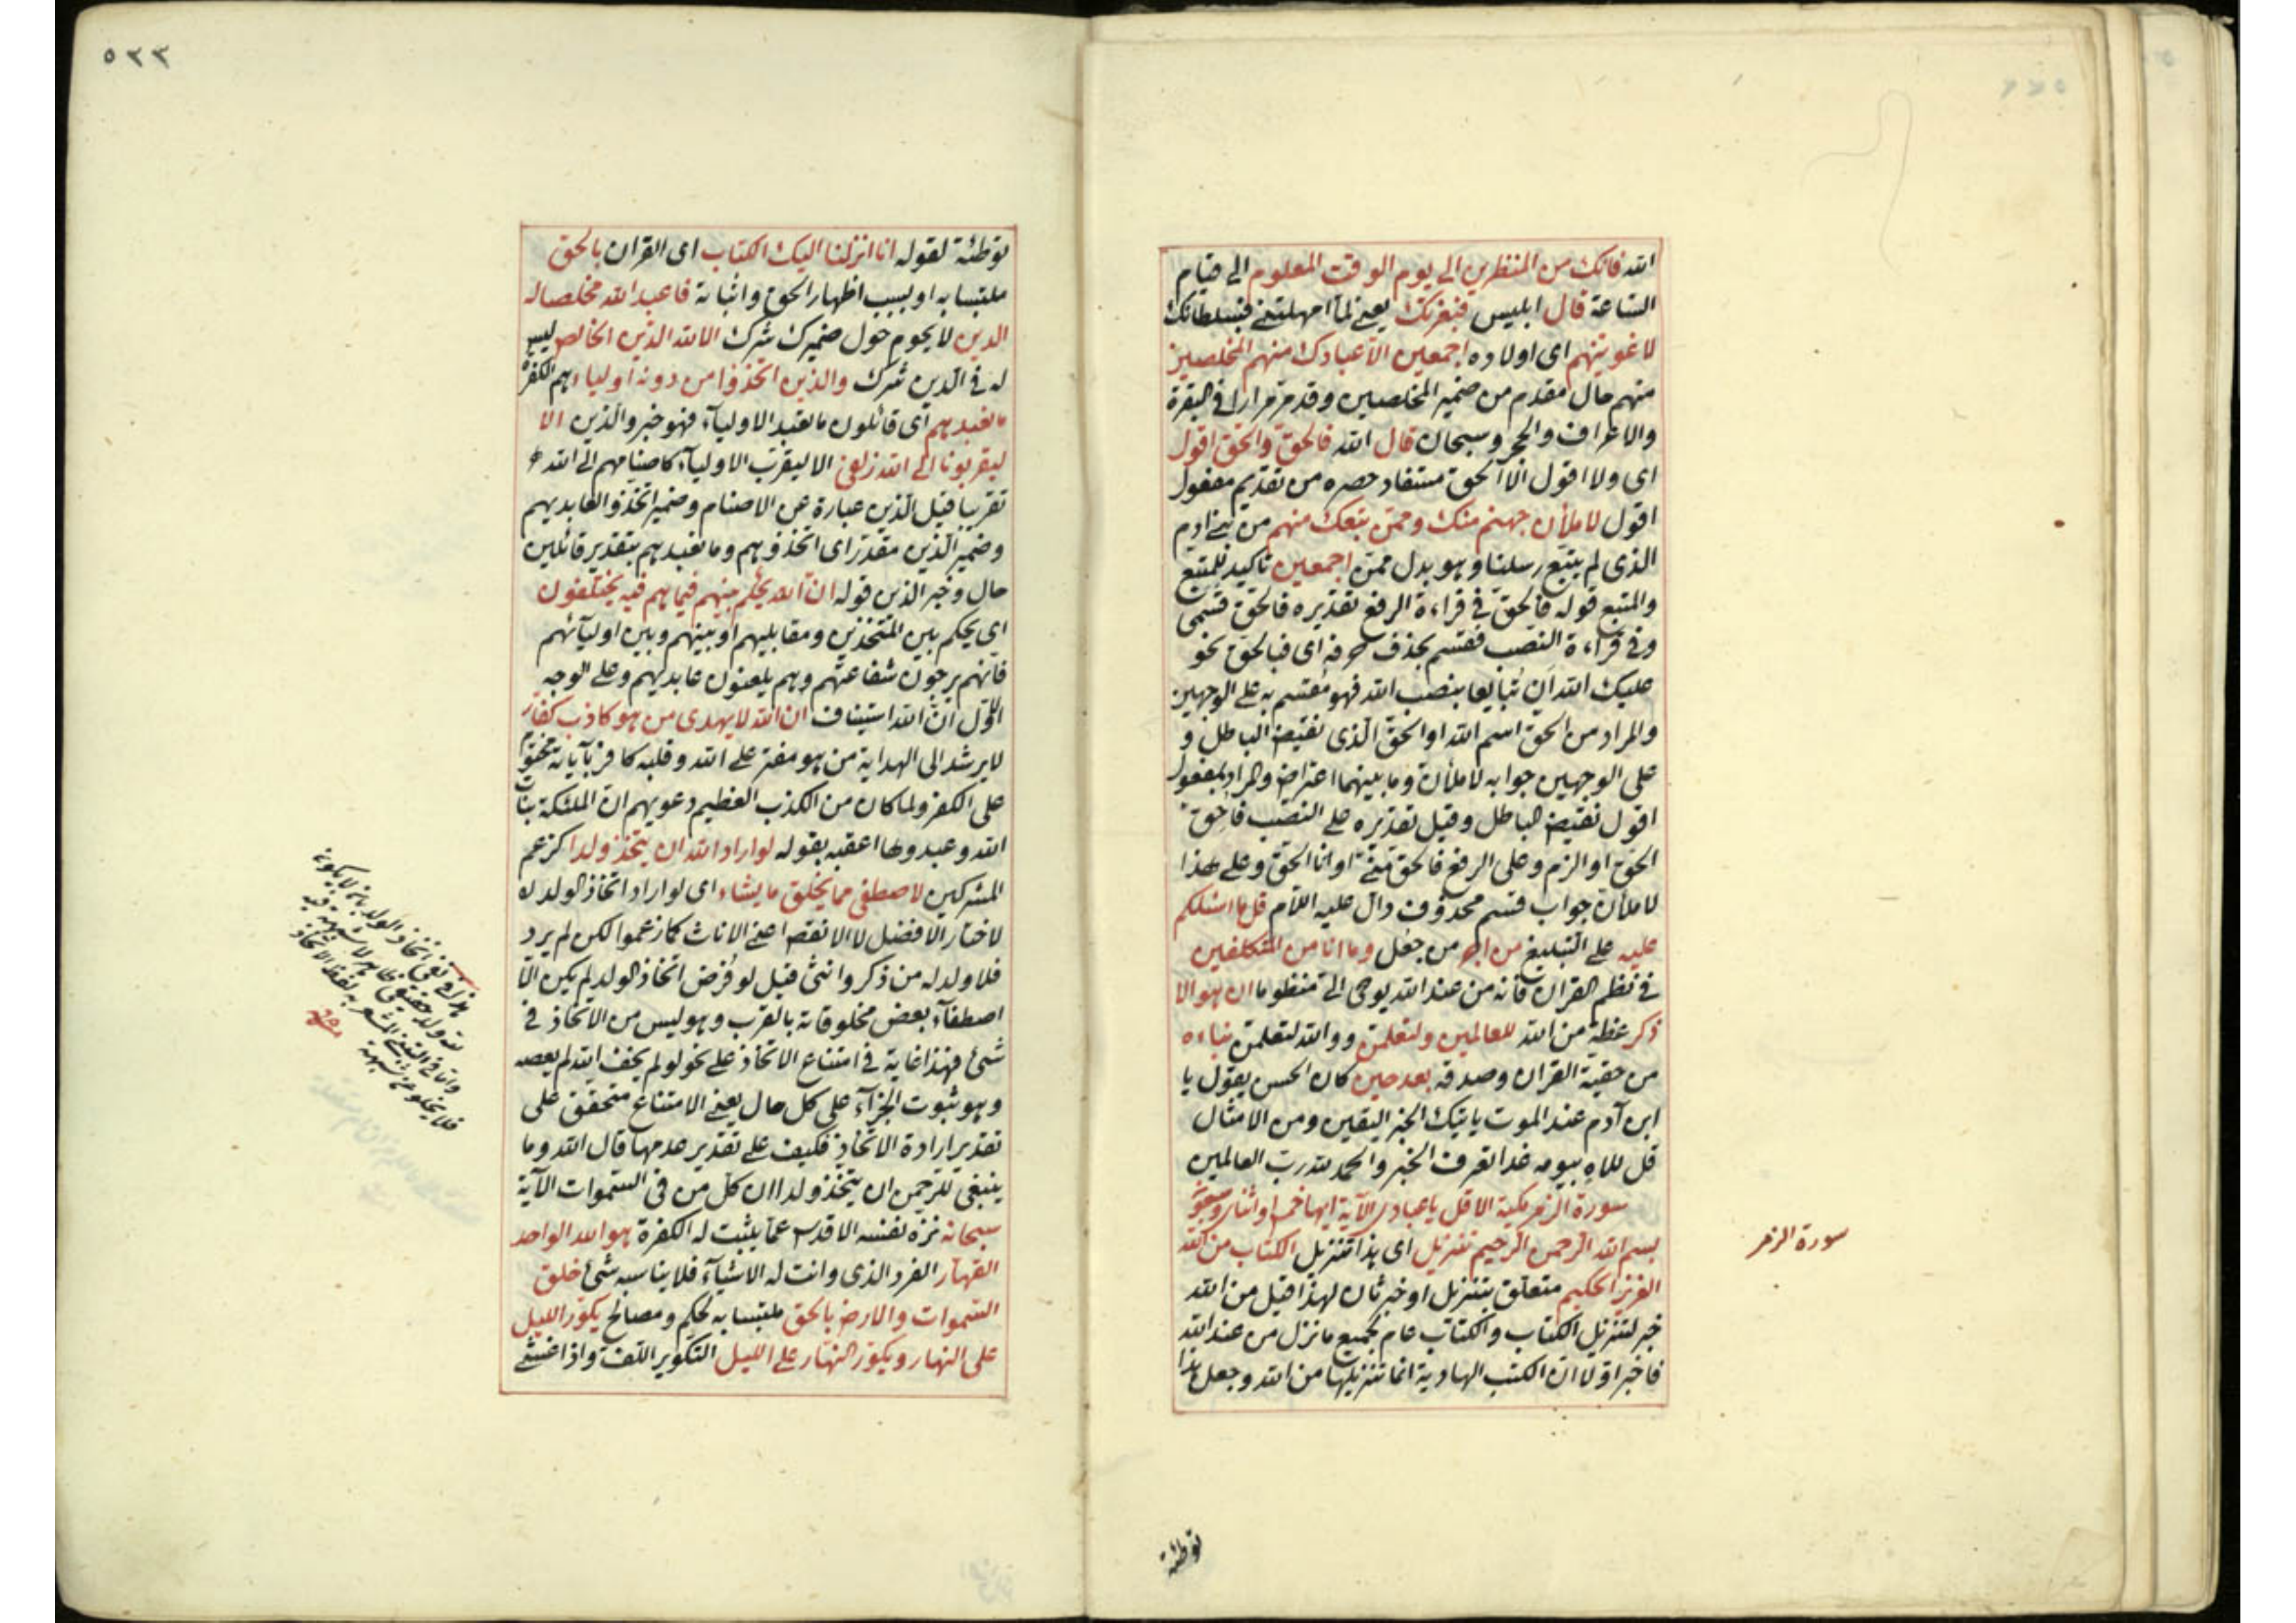 الله فانك من المنظرين الى يوم الوقت المعلوم الى قيام
الساعة قال ابليس فبعزتك يعنى لما امهلتنى فبسلطانك
لاغوينهم اى اولاده اجمعين الا عبادك منهم المخلصين
منهم حال مقدم من ضمير المخلصين وقد مر مرارا فى البقرة
والاعراف والحجر وسبحان قال الله فالحق والحق اقول
اى ولا اقول الا الحق مستفاد حصره من تقديم مفعول
اقول لاملأن جهنم منك وممن تبعك منهم من بنى ادم
الذى لم يتبع رسلنا وهو بدل ممن اجمعين تاكيد للمتبع
والمتبع قوله فالحق فى قراءة الرفع تقديره فالحق قسمى
وفى قراءة النصب فقسم بحذف حرفه اى فبالحق نحو
عليك الله ان تبايعا بنصب الله فهو مقسم به على الوجهين
والمراد من الحق اسم الله او الحق الذى نقيض الباطل و
على الوجهين جوابه لاملأن وما بينهما اعتراض والمراد بمفعول
اقول نقيض الباطل وقيل تقديره على النصب فاحق
الحق او الزم وعلى الرفع فالحق منى او انا الحق وعلى هذا
لاملأن جواب قسم محذوف دال عليه اللام قل ما اسئلكم
عليه على التبليغ من اجر من جعل وما انا من المتكلفين
فى نظم القران فانه من عند الله يوحى الى منظوما ان هو الا
ذكر عظة من الله للعالمين ولتعلمن ووالله لتعلمن نباءه
من حقية القران وصدقه بعد حين كان الحسن يقول يا
ابن آدم عند الموت ياتيك الخبر اليقين ومن الامثال
قل للاه بيومه غدا تعرف الخبر والحمد لله رب العالمين
سورة الزمر مكية الا قل يا عبادى الآية ايها خمس او اثنان وسبعون
بسم الله الرحمن الرحيم تنزيل اى هذا تنزيل الكتاب من الله
العزيز الحكيم متعلق بتنزيل او خبر ثان لهذا قيل من الله
خبر لتنزيل الكتاب والكتاب عام لجميع ما نزل من عند الله
فاخبر اولا ان الكتب الهادية انما تنزيلها من الله وجعل هذا
سورة الزمر
توطئة
٥٣٣
توطئة لقوله انا انزلنا اليك الكتاب اى القران بالحق
ملتبسا به او بسبب اظهار الحق واثباته فاعبد الله مخلصا له
الدين لا يحوم حول ضميرك شرك الا لله الدين الخالص ليس
له فى الدين شرك والذين اتخذوا من دونه اولياء هم الكفرة
ما نعبدهم اى قائلون ما نعبد الاولياء فهو خبر والذين الا
ليقربونا الى الله زلفى الا ليقرب الاولياء كاصنامهم الى الله
تقريبا قيل الذين عبارة عن الاصنام وضمير اتخذوا لعابديهم
وضمير الذين مقدر اى اتخذوهم وما نعبدهم بتقدير قائلين
حال وخبر الذين قوله ان الله يحكم بينهم فيما هم فيه يختلفون
اى يحكم بين المتخذين ومقابليهم او بينهم وبين اوليائهم
فانهم يرجون شفاعتهم وهم يلعنون عابديهم وعلى الوجه
الاول ان الله استيناف ان الله لا يهدى من هو كاذب كفار
لا يرشد الى الهداية من هو مفتر على الله وقلبه كافر بآياته
على الكفر ولما كان من الكذب العظيم دعويهم ان الملئكة بنات
الله وعبدوها اعقبه بقوله لو اراد الله ان يتخذ ولدا كزعم
المشركين لاصطفى مما يخلق ما يشاء اى لو اراد اتخاذ الولد له
لاختار الافضل لا الانقص اعنى الاناث كما زعموا لكن لم يرد
فلا ولد له من ذكر وانثى قيل لو فرض اتخاذ الولد لم يكن الا
اصطفاء بعض مخلوقاته بالقرب وهو ليس من الاتخاذ فى
شئ فهذا غاية فى امتناع الاتخاذ على نحو لو لم يخف الله لم يعصه
وهو ثبوت الجزاء على كل حال يعنى الامتناع متحقق على
تقدير ارادة الاتخاذ فكيف على تقدير عدمها قال الله وما
ينبغى للرحمن ان يتخذ ولدا ان كل من فى السموات الآية
سبحانه نزه نفسه الاقدس عما يثبت له الكفرة هو الله الواحد
القهار الفرد الذى وانت له الاشياء فلا يناسبه شئ خلق
السموات والارض بالحق ملتبسا به لحكم ومصالح يكور الليل
على النهار ويكور النهار على الليل التكوير اللف واذا غشى